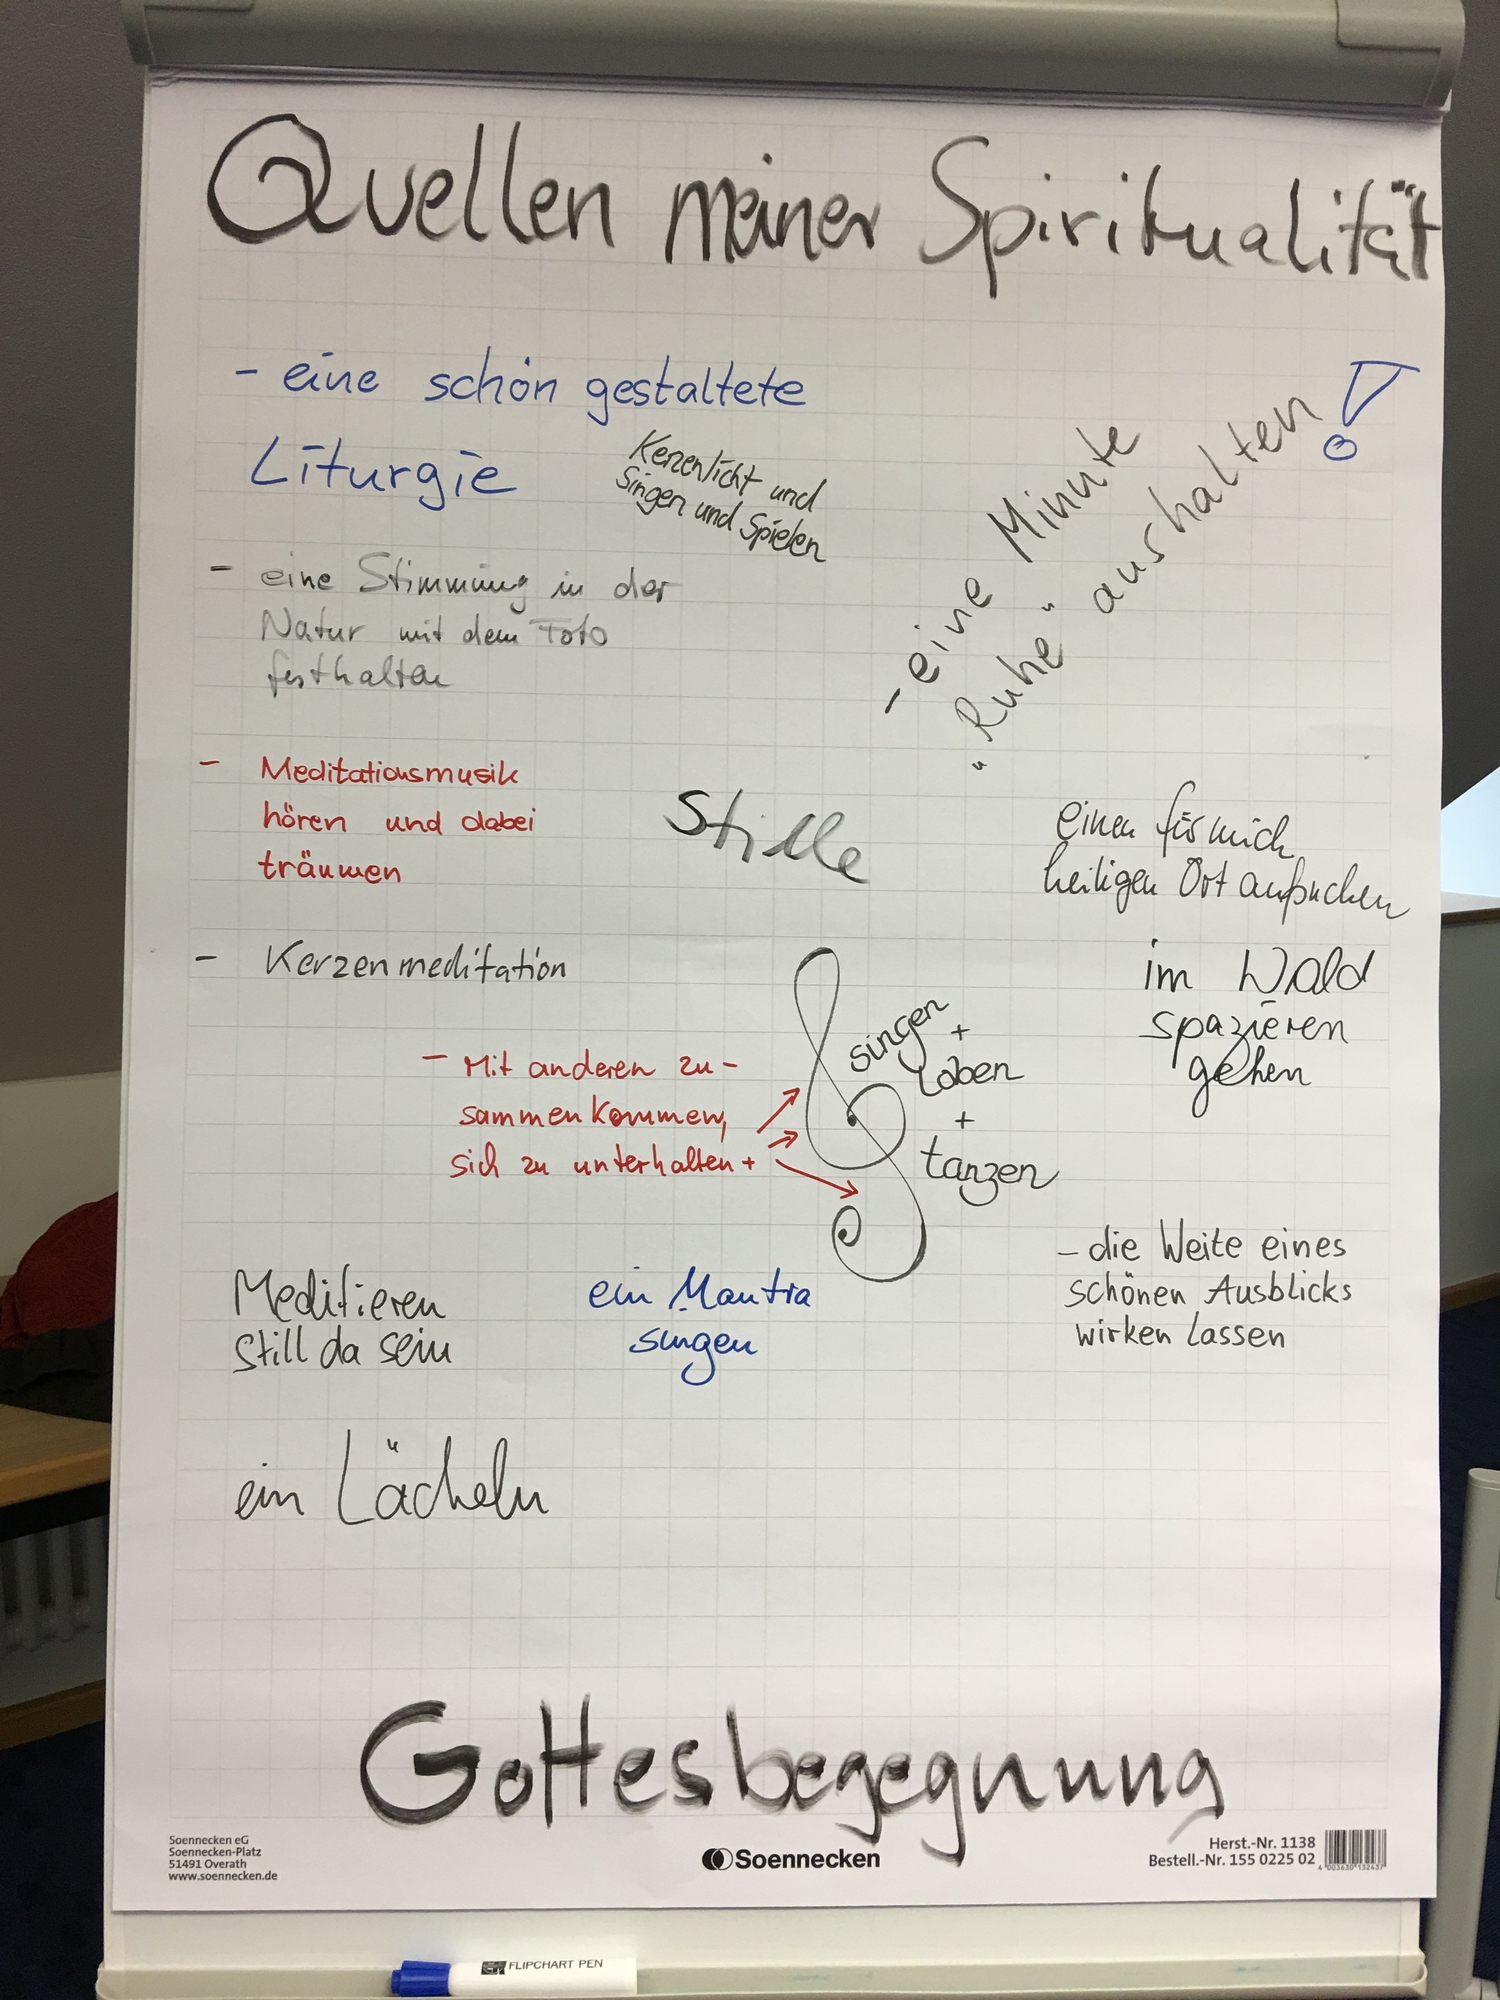 Quellen meiner Spiritualität
- eine schön gestaltete
Liturgie
Kerzenlicht und
Singen und Spielen
- eine Minute
"Ruhe" aushalten !
- eine Stimmung in der
Natur mit dem Foto
festhalten
- Meditationsmusik
hören und dabei
träumen
Stille
einen für mich
heiligen Ort aufsuchen
- Kerzenmeditation
im Wald
spazieren
gehen
singen
+
Loben
+
tanzen
- Mit anderen zu-
sammenkommen,
sich zu unterhalten +
- die Weite eines
schönen Ausblicks
wirken lassen
Meditieren
Still da sein
ein Mantra
singen
ein Lächeln
Gottesbegegnung
Soennecken eG
Soennecken-Platz
51491 Overath
www.soennecken.de
Soennecken
Herst.-Nr. 1138
Bestell.-Nr. 155 0225 02
4 003630 132437
FLIPCHART PEN